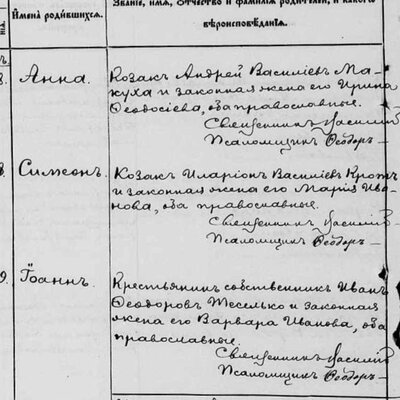 Имена родившихся.
Званіе, имя, отчество и фамилія родителей, и какого
вѣроисповѣданія.
Анна.
Козакъ Андрей Василіевъ Ма-
куха и законная жена его Ирина
Ѳеодосіева, оба православные.
Священникъ Василій
Псаломщикъ Ѳеодоръ
Симеонъ.
Козакъ Иларіонъ Василіевъ Кротъ
и законная жена его Марія Ива-
нова, оба православные.
Священникъ Василій
Псаломщикъ Ѳеодоръ
9.
Іоаннъ.
Крестьянинъ собственникъ Иванъ
Ѳеодоровъ Теселько и законная
жена его Варвара Иванова, оба
православные.
Священникъ Василій
Псаломщикъ Ѳеодоръ